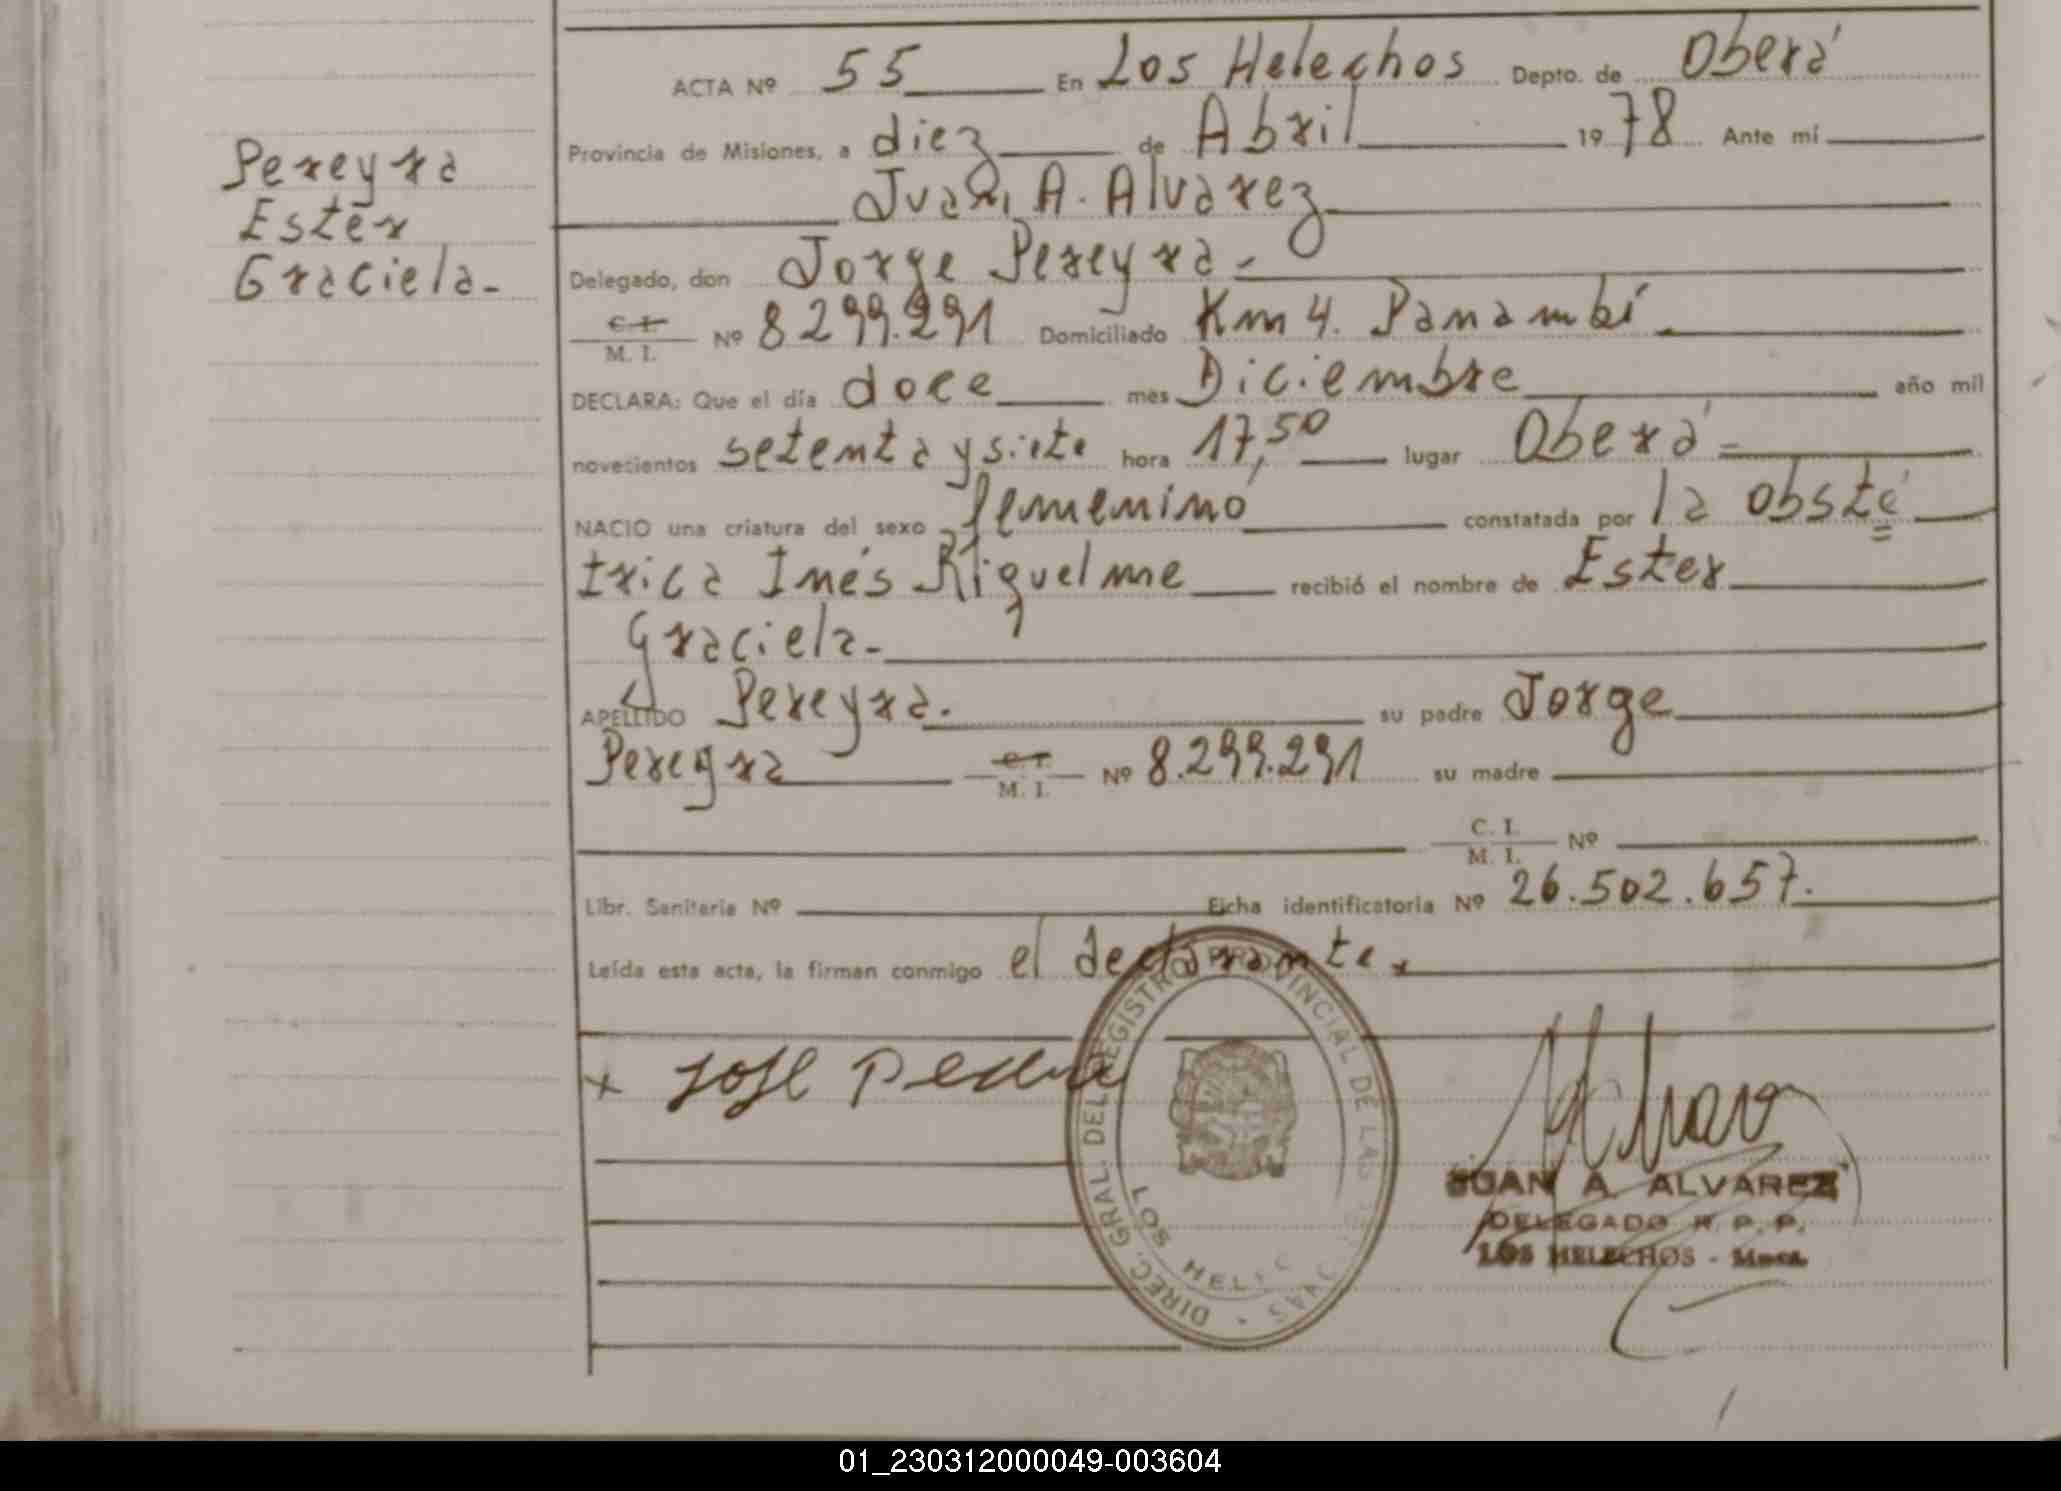 ACTA Nº 55 En Los Helechos Depto. de Oberá
Provincia de Misiones, a diez de Abril 1978 Ante mí
Juan A. Alvarez
Delegado, don Jorge Pereyra -
C. I. M. I. Nº 8299.291 Domiciliado Km 4. Panambí
DECLARA: Que el día doce mes Diciembre año mil
novecientos setenta y siete hora 17,50 lugar Oberá -
NACIO una criatura del sexo femenino constatada por la obsté
Irica Inés Riquelme recibió el nombre de Ester
Graciela -
APELLIDO Pereyra. su padre Jorge
Pereyra C. I. M. I. Nº 8.299.291 su madre
C. I. M. I. Nº
Libr. Sanitaria Nº Ficha identificatoria Nº 26.502.657.
Leída esta acta, la firman conmigo el declarante.
Pereyra
Ester
Graciela -
x
DIREC. GRAL. DEL REGISTRO PROVINCIAL DE LAS
LOS HELEC
JUAN A. ALVAREZ
DELEGADO R. P. P.
LOS HELECHOS - Mnes.
01_230312000049-003604